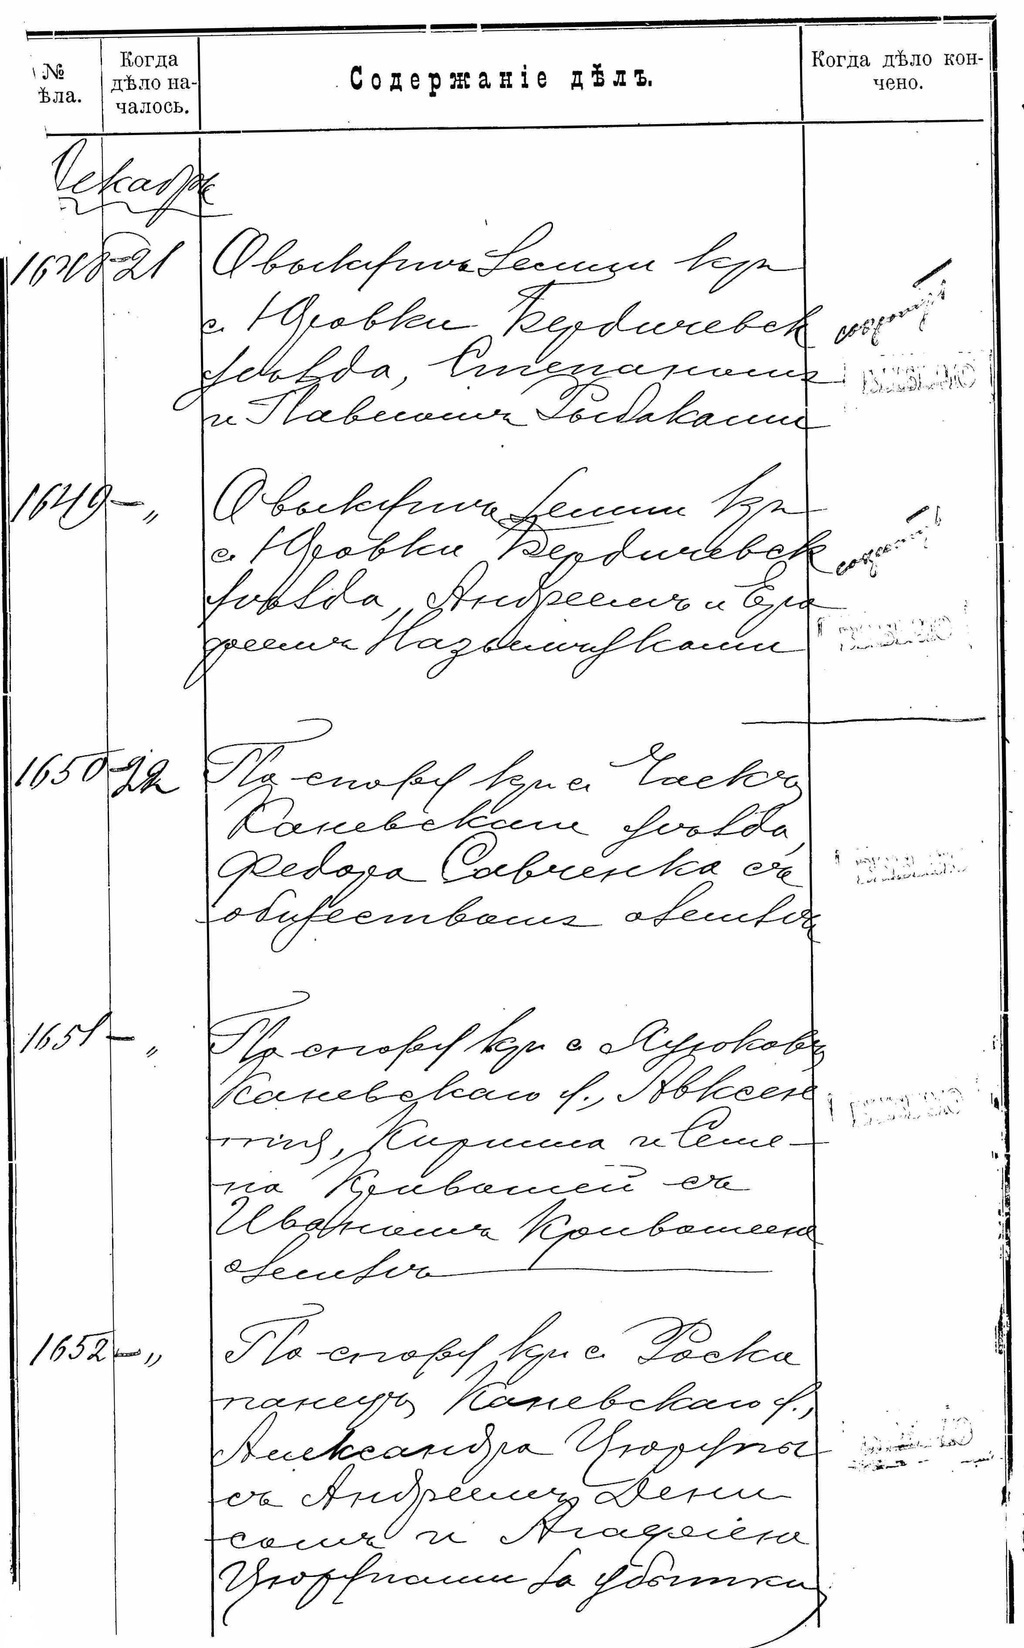 № ѣла.
Когда дѣло на-
чалось.
Содержаніе дѣлъ.
Когда дѣло кон-
чено.
Декабрь
1648 - 21 О выкупѣ земли кр.
с. Юровки Бердичевск
уѣзда, Степаномъ
и Павломъ Рыбаками
1649 - „ О выкупѣ земли кр.
с. Юровки Бердичевск
уѣзда, Андреемъ и Ero
феемъ Назымчуками
1650 - 22 По спору кр. с.
Каневскаго уѣзда,
Федора Савченка съ
обществомъ о землѣ
1651 - „ По спору кр. с.
Каневскаго у., Авксен
тія, Кирила и Семе-
на Кривошей съ
Иваномъ Кривошеено
о землѣ
1652 - „ По спору кр. с. Роско
панецъ Каневскаго у.,
Александра Цюрупы
съ Андреемъ, Дени
сомъ и Агафіею
Цюрупами за убытки